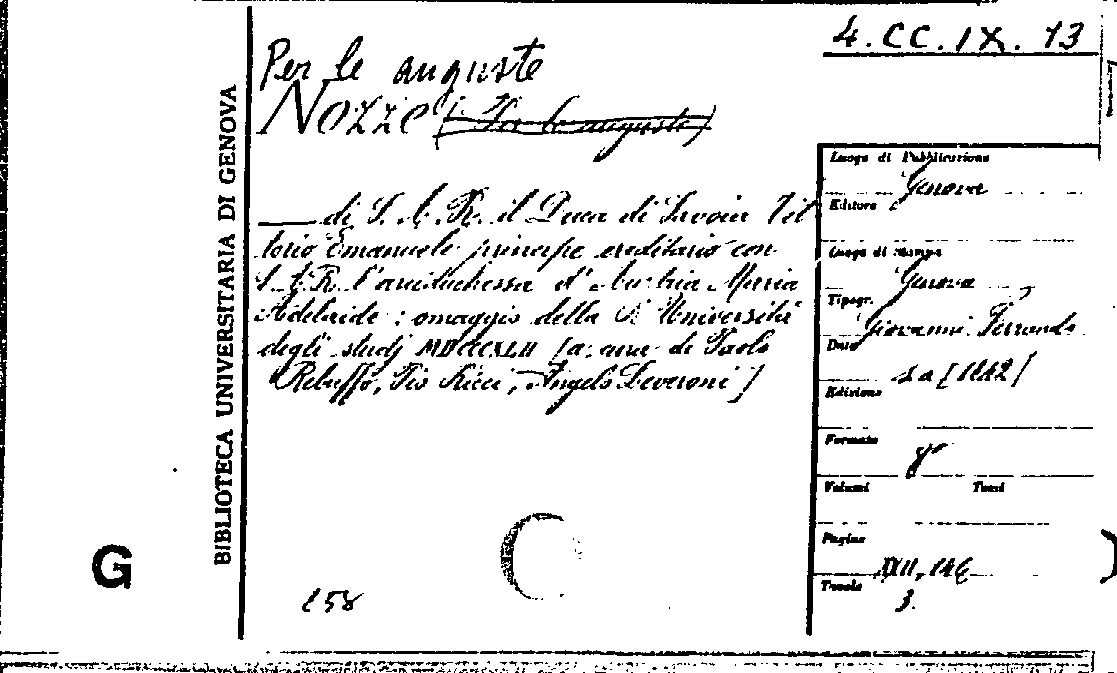 4.CC.IX.13
Per le auguste
Nozze (Per le auguste)
di S. A. R. il Duca di Savoia Vit
torio Emanuele principe ereditario con
S.A.R. l'arciduchessa d'Austria Maria
Adelaide : omaggio della R. Università
degli studj MDCCCXLII [a cura di Paolo
Rebuffo, Pio Ricci, Angelo Leveroni]
158
BIBLIOTECA UNIVERSITARIA DI GENOVA
G
Luogo di Pubblicazione
Genova
Editore
Luogo di stampa
Genova
Tipogr.
Giovanni Ferrando
Data
s.a [1842]
Edizione
Formato
8°
Volumi Tomi
Pagine
146
Tavole
3.